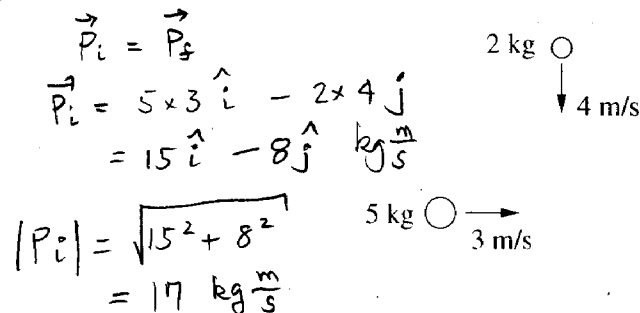 P⃗i = P⃗f
P⃗i = 5×3 î − 2×4 ĵ
= 15 î − 8 ĵ kg m/s
|Pi| = √(15² + 8²)
= 17 kg m/s
2 kg
4 m/s
5 kg
3 m/s